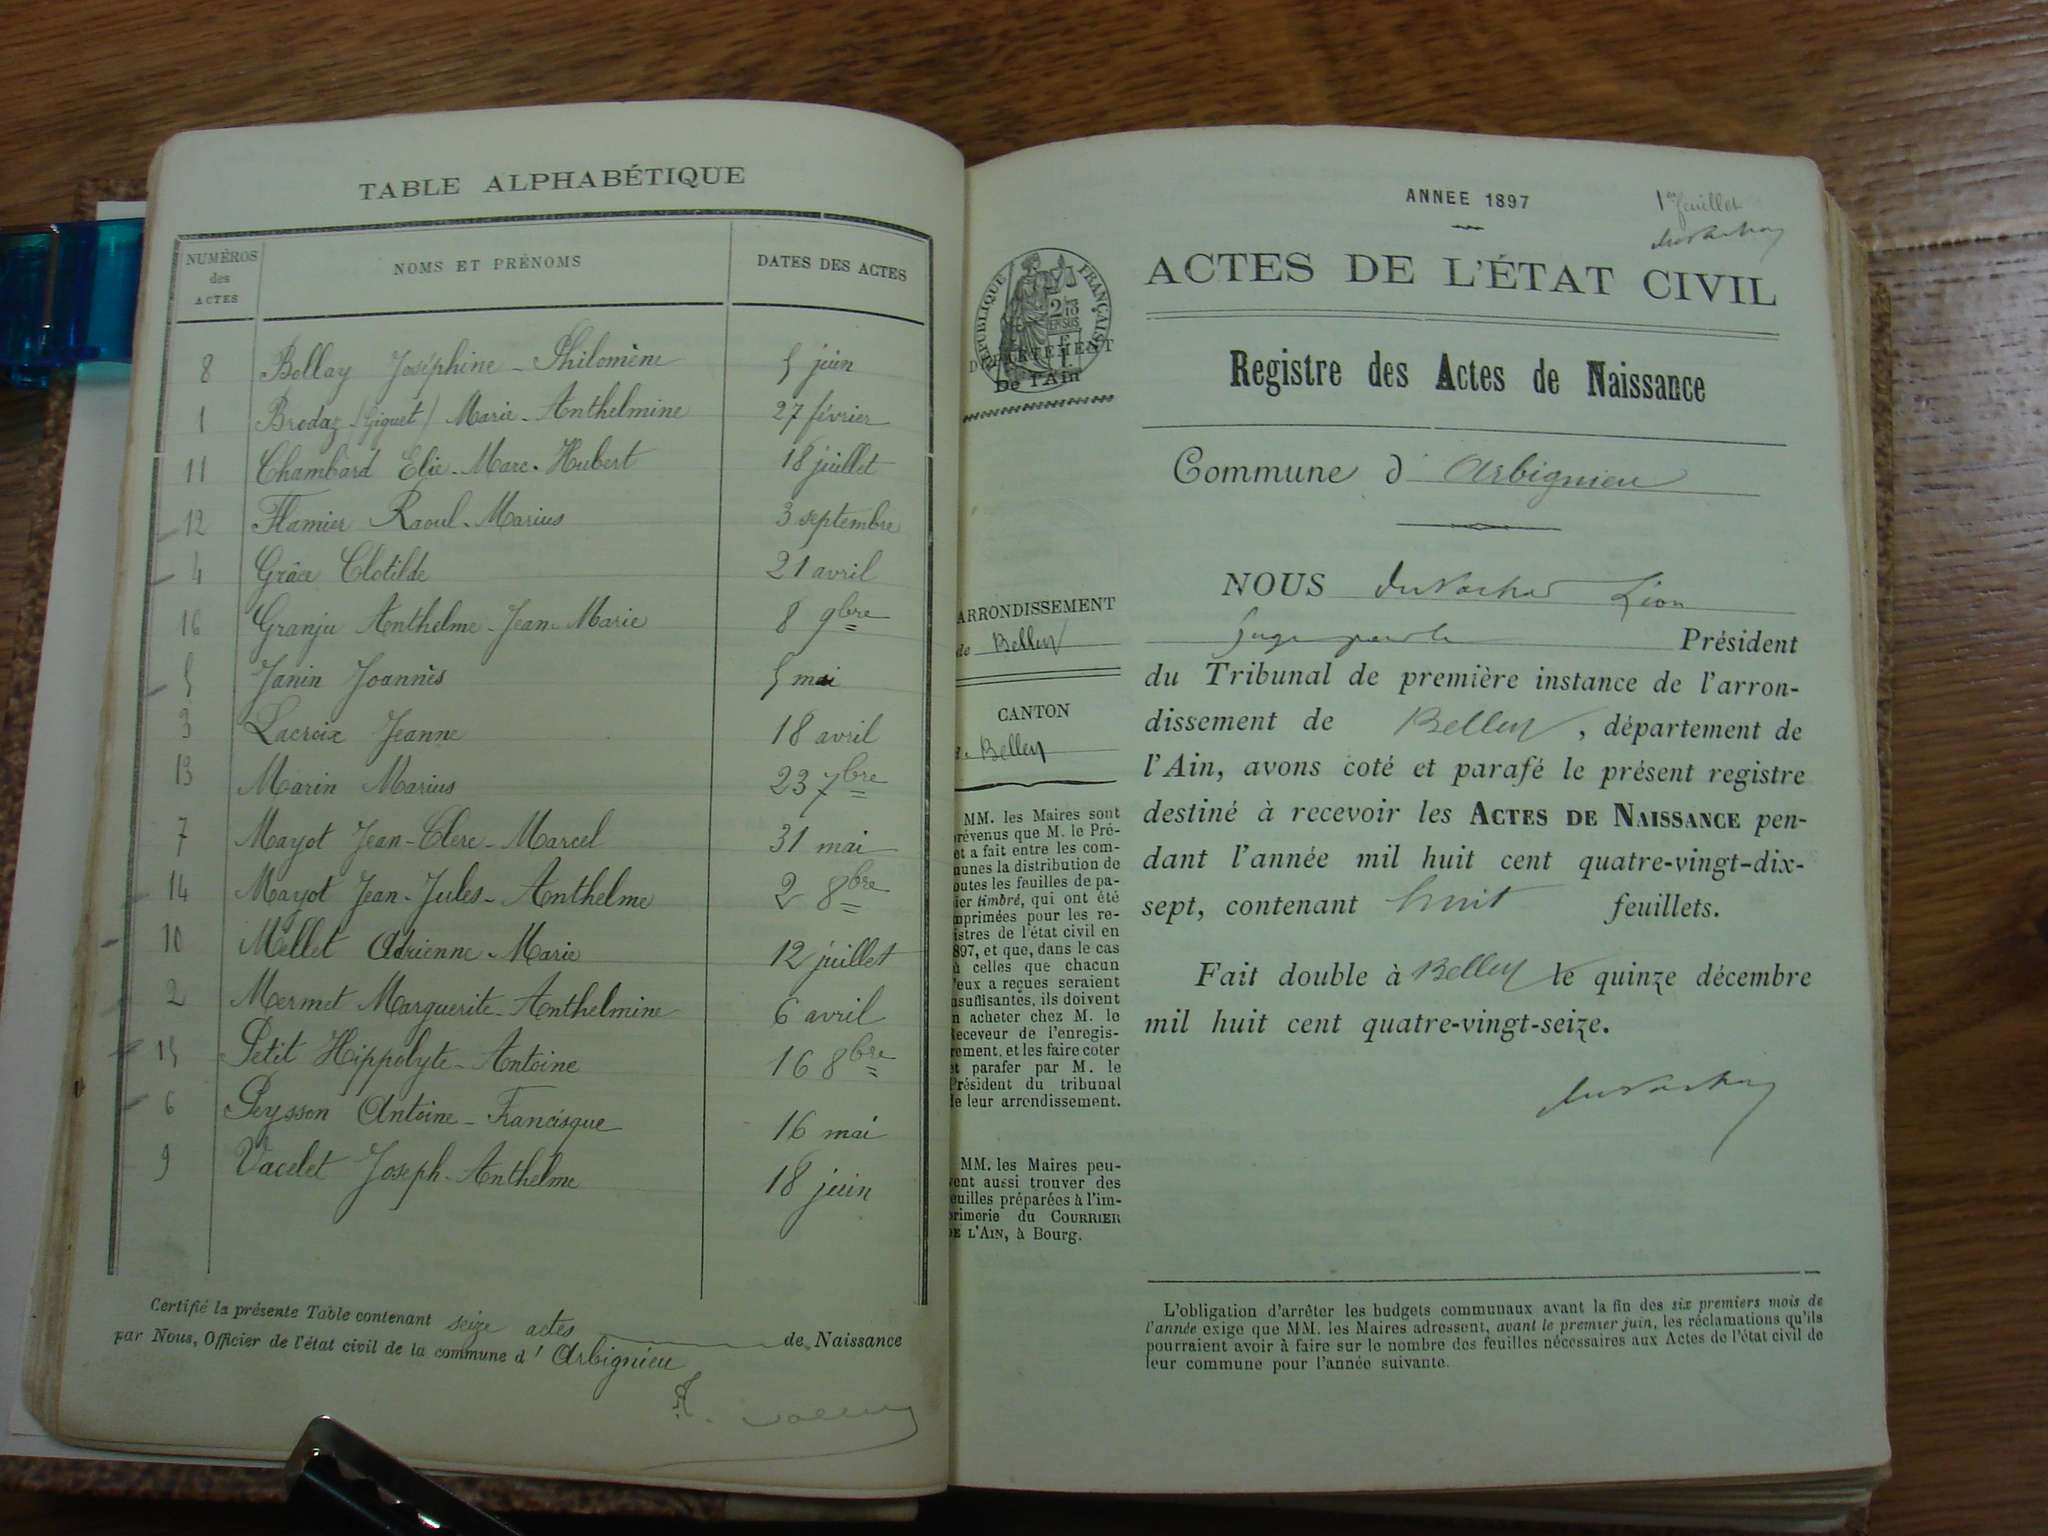 TABLE ALPHABÉTIQUE
NUMÉROS des ACTES
NOMS ET PRÉNOMS
DATES DES ACTES
8 Bellay Joséphine-Philomène 5 juin
1 Brodaz (Giguet) Marie-Anthelmine 27 février
11 Chambard Elie-Marc-Hubert 18 juillet
12 Flamier Raoul-Marius 3 septembre
4 Grâce Clotilde 21 avril
16 Granju Anthelme-Jean-Marie 8 9bre
5 Janin Joannès 5 mai
3 Lacroix Jeanne 18 avril
13 Marin Marius 23 7bre
7 Mayot Jean-Clerc-Marcel 31 mai
14 Mayot Jean-Jules-Anthelme 2 8bre
10 Mellet Adrienne-Marie 12 juillet
2 Mermet Marguerite-Anthelmine 6 avril
15 Petit Hippolyte-Antoine 16 8bre
6 Peysson Antoine-Francisque 16 mai
9 Vacelet Joseph-Anthelme 18 juin
Certifié la présente Table contenant seize actes de Naissance
par Nous, Officier de l'état civil de la commune d'Arbignieu
ANNEE 1897
1er feuillet
ACTES DE L'ÉTAT CIVIL
RÉPUBLIQUE FRANÇAISE
DÉPARTEMENT
De l'Ain
Registre des Actes de Naissance
Commune d'Arbignieu
ARRONDISSEMENT
de Belley
CANTON
Belley
MM. les Maires sont
prévenus que M. le Pré-
et a fait entre les com-
munes la distribution de
toutes les feuilles de pa-
pier timbré, qui ont été
imprimées pour les re-
gistres de l'état civil en
1897, et que, dans le cas
où celles que chacun
d'eux a reçues seraient
insuffisantes, ils doivent
en acheter chez M. le
Receveur de l'enregis-
trement, et les faire coter
et parafer par M. le
Président du tribunal
de leur arrondissement.
MM. les Maires peu-
vent aussi trouver des
feuilles préparées à l'im-
primerie du COURRIER
DE L'AIN, à Bourg.
NOUS Léon
Président
du Tribunal de première instance de l'arron-
dissement de Belley, département de
l'Ain, avons coté et parafé le présent registre
destiné à recevoir les ACTES DE NAISSANCE pen-
dant l'année mil huit cent quatre-vingt-dix-
sept, contenant huit feuillets.
Fait double à Belley le quinze décembre
mil huit cent quatre-vingt-seize.
L'obligation d'arrêter les budgets communaux avant la fin des six premiers mois de
l'année exige que MM. les Maires adressent, avant le premier juin, les réclamations qu'ils
pourraient avoir à faire sur le nombre des feuilles nécessaires aux Actes de l'état civil de
leur commune pour l'année suivante.